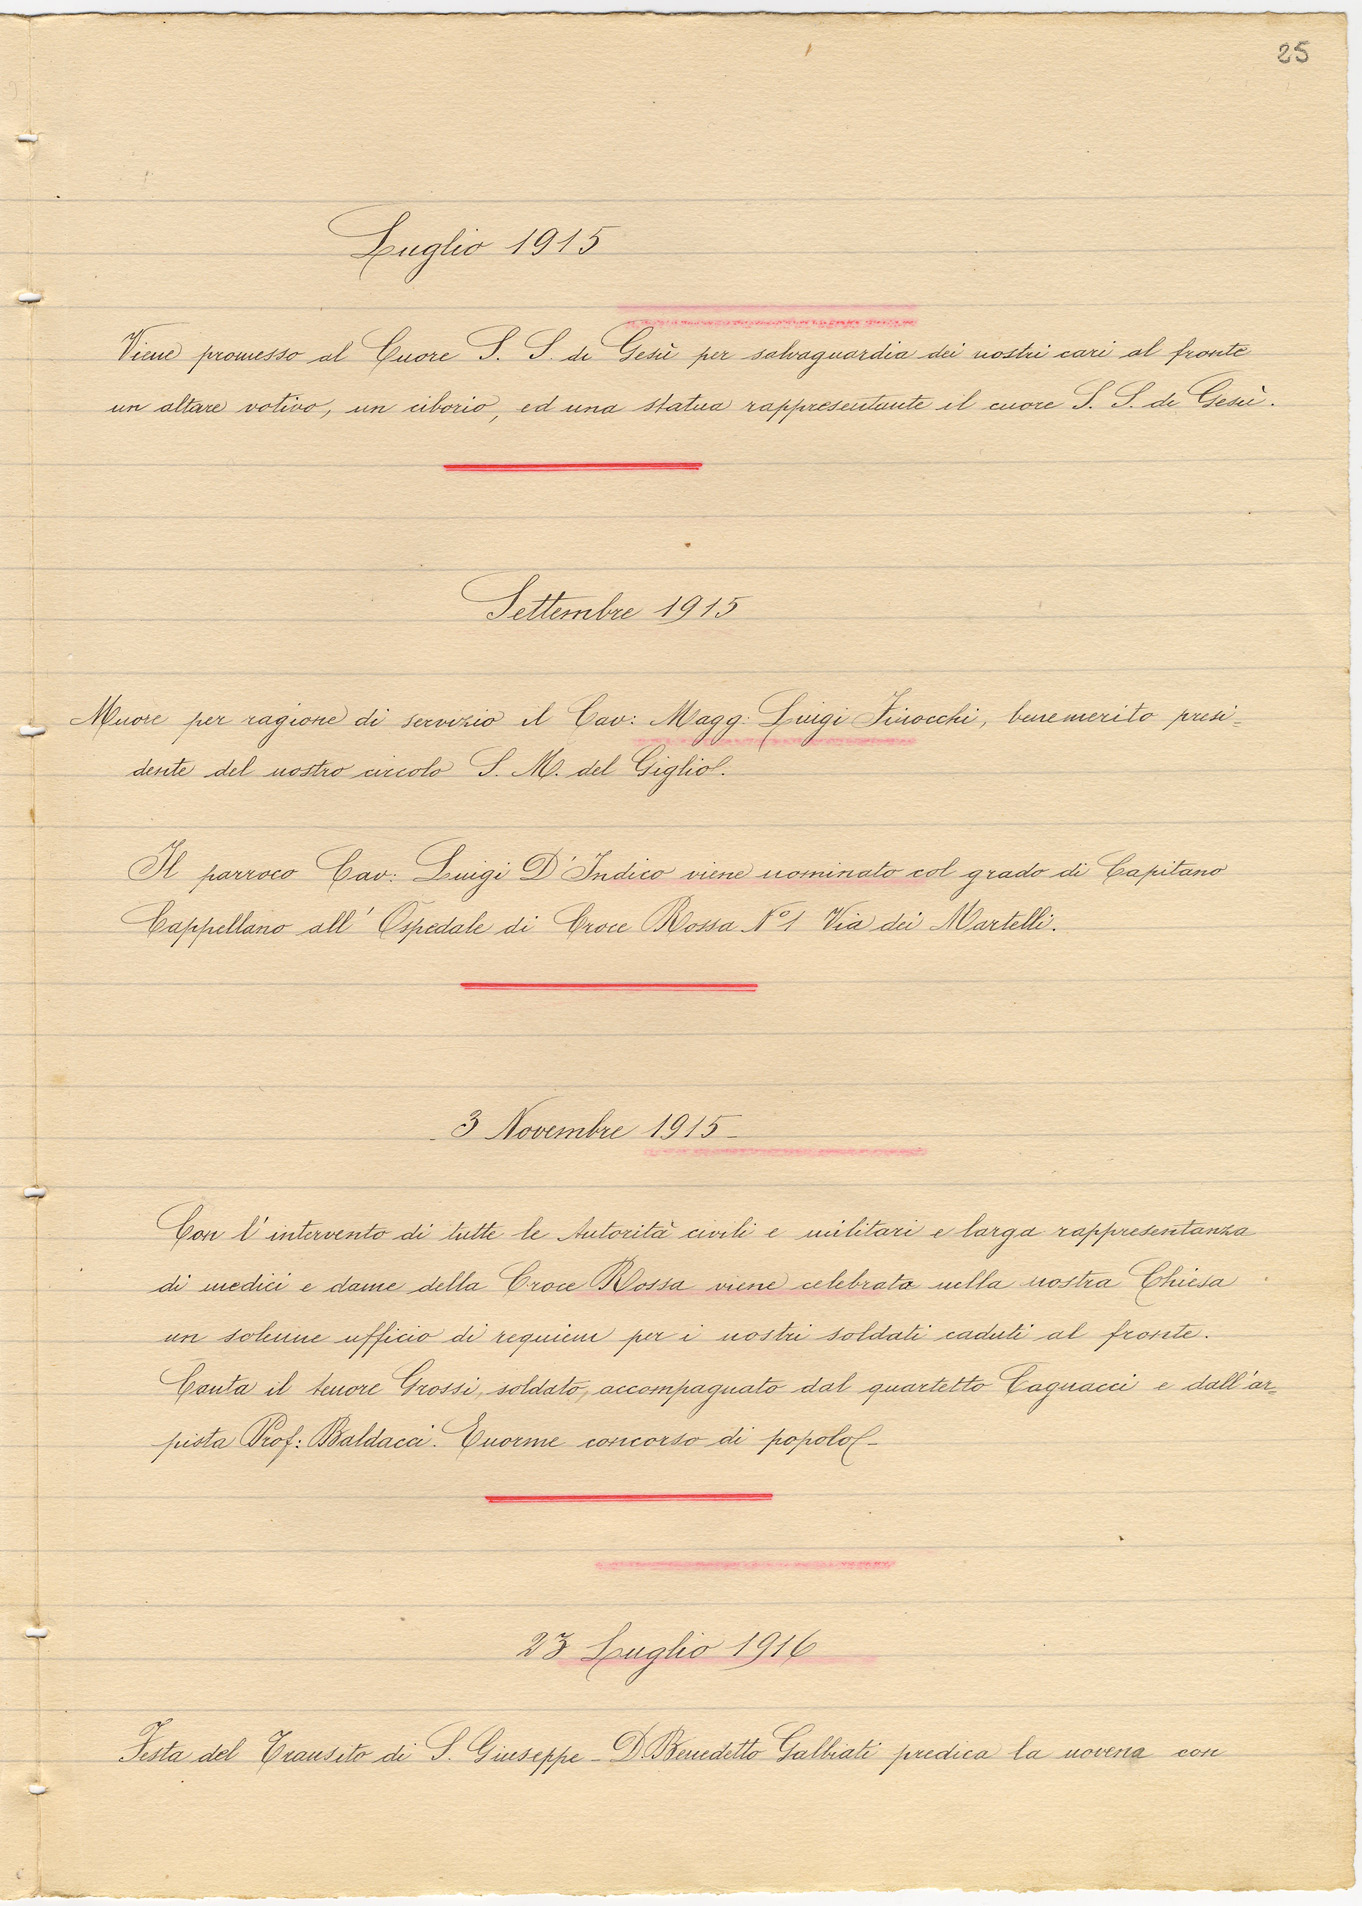 25
Luglio 1915
Viene promesso al Cuore S. S. di Gesù per salvaguardia dei nostri cari al fronte
un altare votivo, un ciborio, ed una statua rappresentante il cuore S. S. di Gesù.
Settembre 1915
Muore per ragione di servizio il Cav: Magg: Luigi Finocchi, benemerito presi=
dente del nostro circolo S. M. del Giglio.
Il parroco Cav: Luigi D'Indico viene nominato col grado di Capitano
Cappellano all'Ospedale di Croce Rossa No 1 Via dei Martelli.
- 3 Novembre 1915 -
Con l'intervento di tutte le Autorità civili e militari e larga rappresentanza
di medici e dame della Croce Rossa viene celebrato nella nostra Chiesa
un solenne ufficio di requiem per i nostri soldati caduti al fronte.
Canta il tenore Grossi, soldato, accompagnato dal quartetto Cagnacci e dall'ar=
pista Prof: Baldacci. Enorme concorso di popolo -
23 Luglio 1916
Festa del Transito di S. Giuseppe - D. Benedetto Galbiati predica la novena con